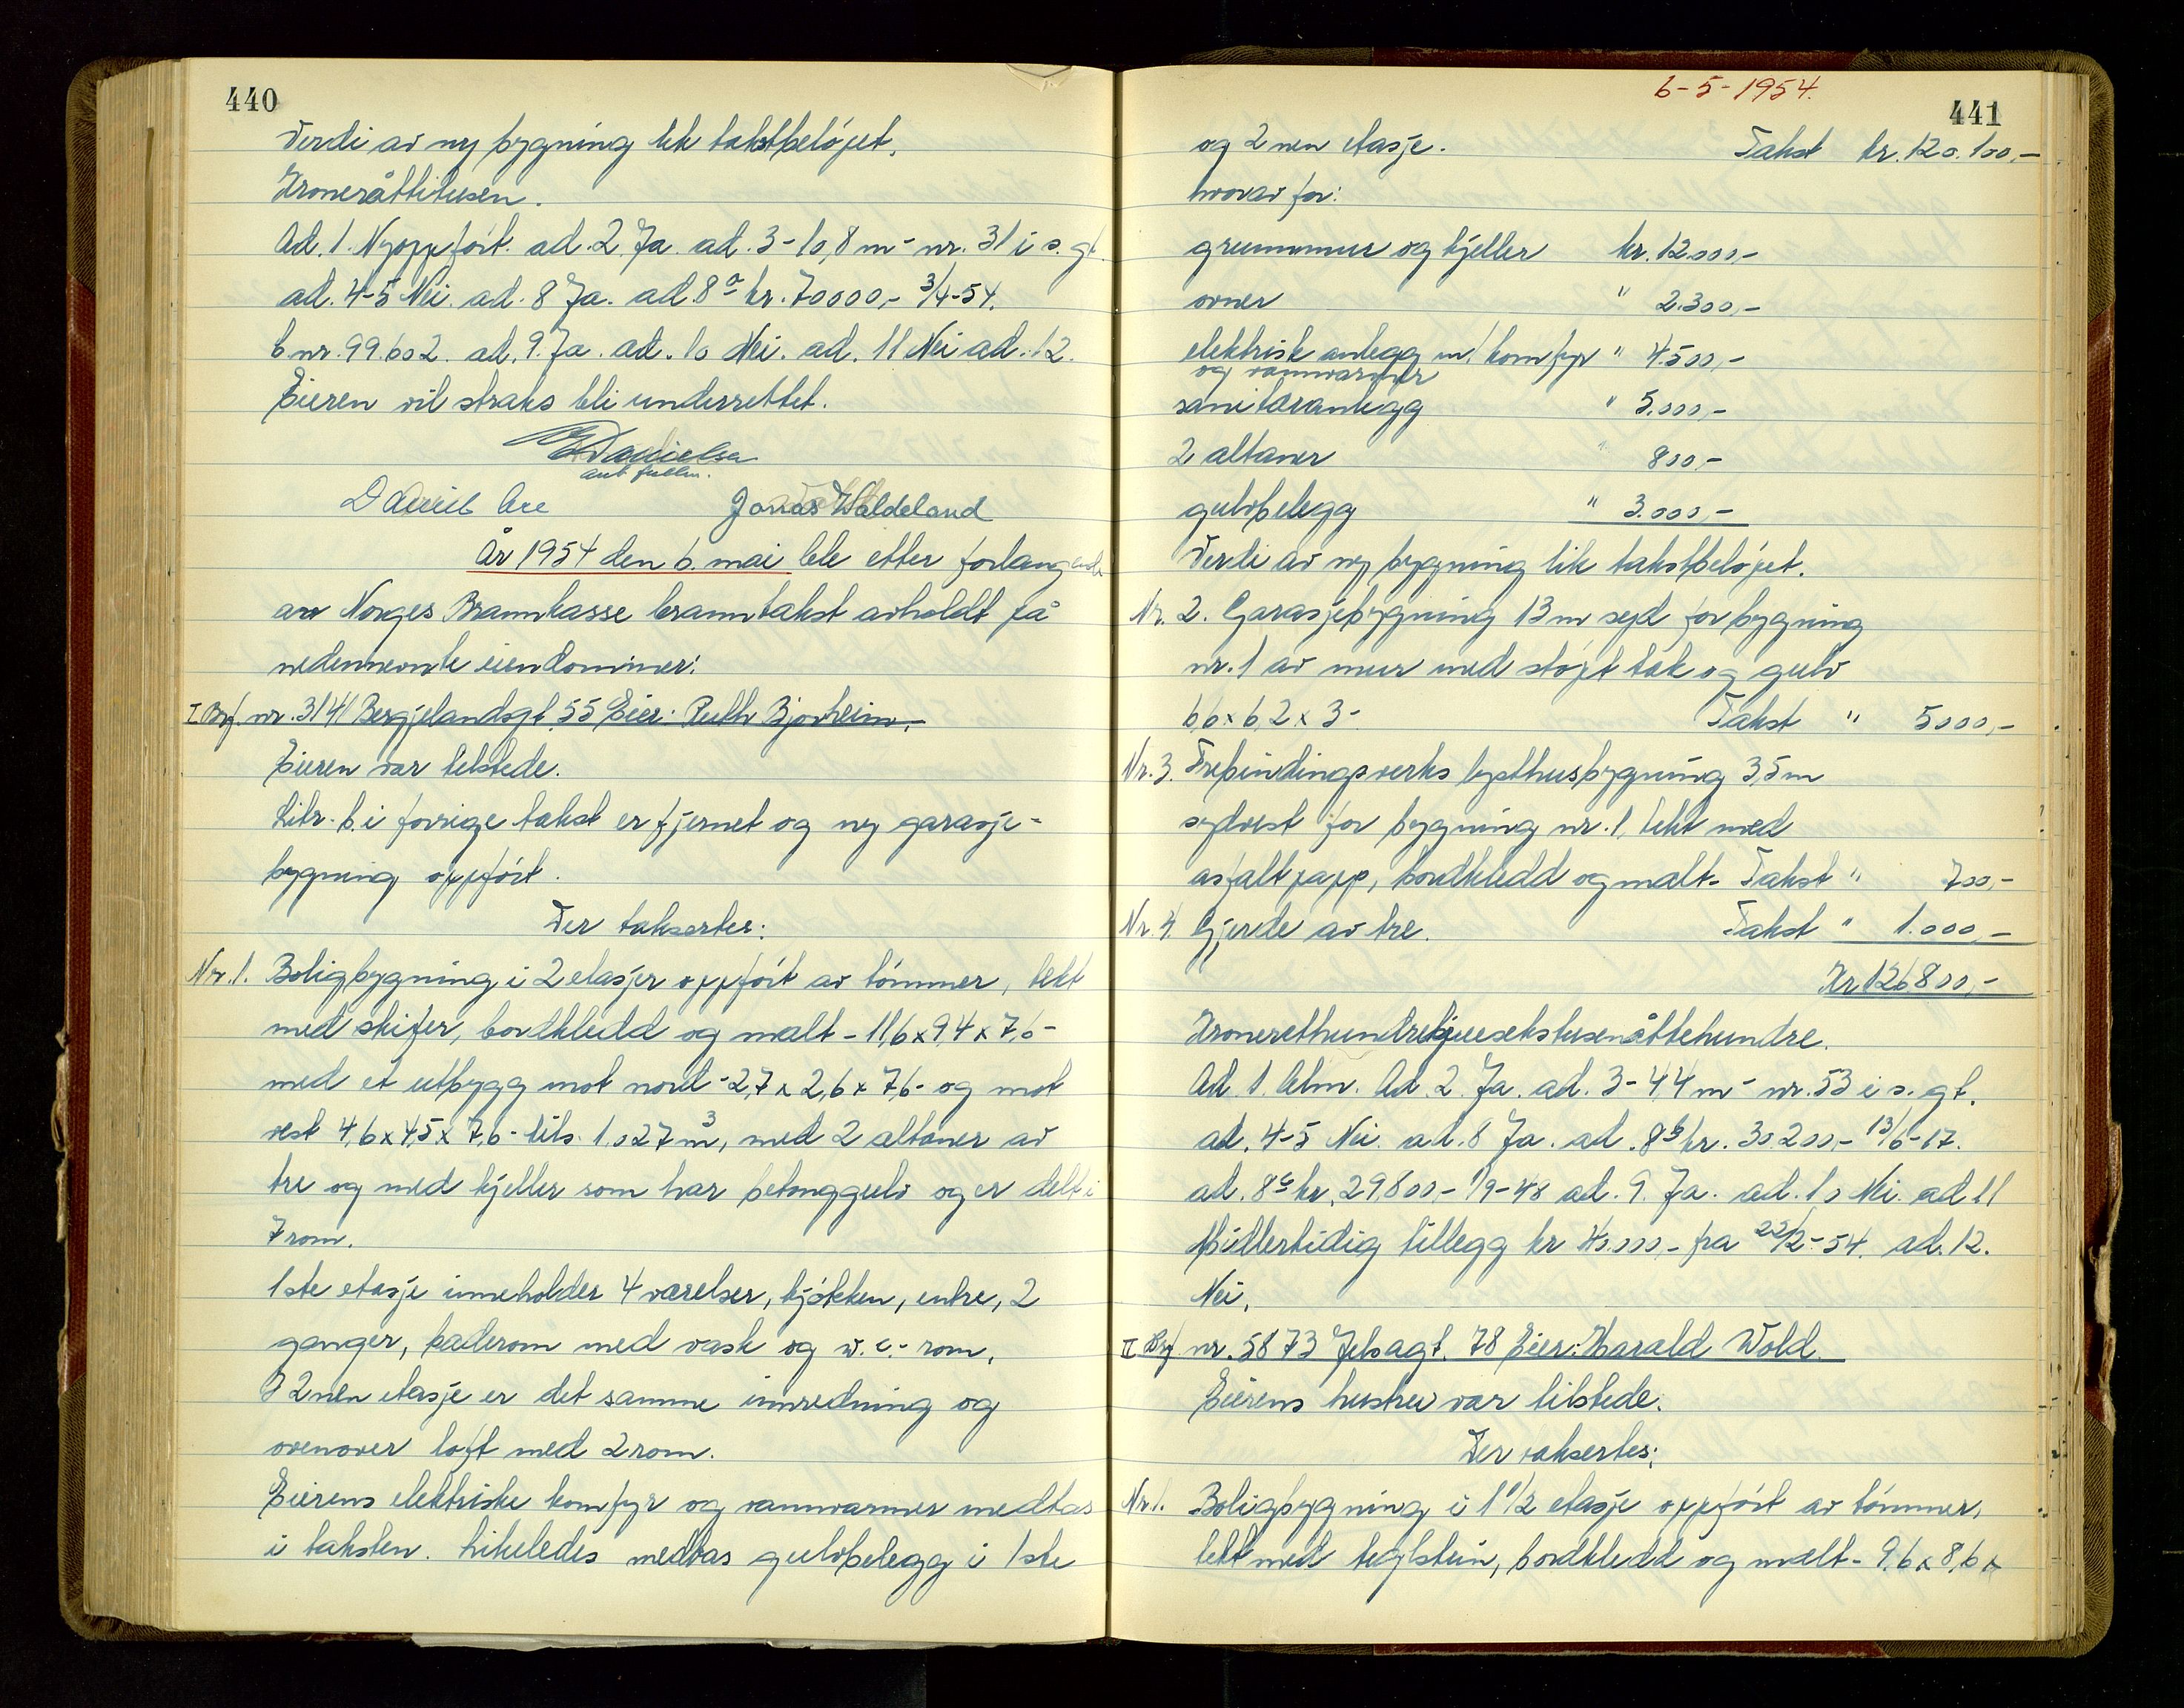 440
Verdi av ny bygning lik takstbeløpet.
Kroneråttitusen.
Ad. 1. Nyoppført. ad. 2. Ja. ad. 3 - 10,8 m - nr. 31 i s. gt.
ad. 4-5 Nei. ad. 8 Ja. ad 8a kr. 70000,- 3/4-54.
b nr. 99.602. ad. 9. Ja. ad. 10 Nei. ad. 11 Nei ad. 12.
Eieren vil straks bli underrettet.
E Danielsen
aut. fullm.
Daniel Jonas Waldeland
År 1954 den 6. mai ble etter forlangende
av Norges Brannkasse branntakst avholdt på
nedennevnte eiendommer:
I. Brf. nr. 3141 Bergjelandsgt. 55 Eier: Ruth Bjorheim.
Eieren var tilstede.
Litr. b. i forrige takst er fjernet og ny garasje-
bygning oppført.
Der takserter:
Nr. 1. Boligbygning i 2 etasjer oppført av tømmer, tekt
med skifer, bordkledd og malt - 11,6 x 9,4 x 7,6 -
med et utbygg mot nord - 2,7 x 2,6 x 7,6 - og mot
vest 4,6 x 4,5 x 7,6 - tils. 1.027 m3, med 2 altaner av
tre og med kjeller som har betonggulv og er delt i
7 rom.
1ste etasje inneholder 4 værelser, kjøkken, entre, 2
ganger, baderom med vask og w.c.- rom.
I 2nen etasje er det samme innredning og
ovenover loft med 2 rom.
Eierens elektriske komfyr og vannvarmer medtas
i taksten. Likeledes medtas gulvbelegg i 1ste
6-5-1954.
441
og 2nen etasje. Takst kr. 120.100,-
hvorav for:
grunnmur og kjeller kr. 12.000,-
ovner " 2.300,-
elektrisk anlegg m/ komfyr " 4.500,-
og vannvarmer
sanitæranlegg " 5.000,-
2 altaner " 800,-
gulvbelegg " 3.000,-
Verdi av ny bygning lik takstbeløpet.
Nr. 2. Garasjebygning 13 m syd for bygning
nr. 1 av mur med støpt tak og gulv
6,6 x 6,2 x 3 - Takst " 5000,-
Nr. 3. Trebindingsverks lysthusbygning 3,5 m
sydvest for bygning nr. 1, tekt med
asfaltpapp, bordkledd og malt. Takst " 700,-
Nr. 4. Gjerde av tre. Takst " 1.000,-
Kr. 126800,-
Kronerethundretjuesekstusenåttehundre.
Ad. 1. Alm. Ad. 2. Ja. ad. 3 - 4,4 m - nr. 53 i s. gt.
ad. 4-5 Nei. ad. 8 Ja. ad. 8b kr. 30.200,- 13/6-17.
ad. 8c kr. 29.800,- 1/9-48 ad. 9. Ja. ad. 10 Nei. ad 11
Midlertidig tillegg kr 40.000,- fra 22/2-54. ad. 12.
Nei.
II Brf. nr. 5873 Jelsagt. 78 Eier: Harald Wold.
Eierens hustru var tilstede.
Der taksertes:
Nr. 1. Boligbygning i 1 1/2 etasje oppført av tømmer,
tekt med teglstein, bordkledd og malt - 9,6 x 8,6 x